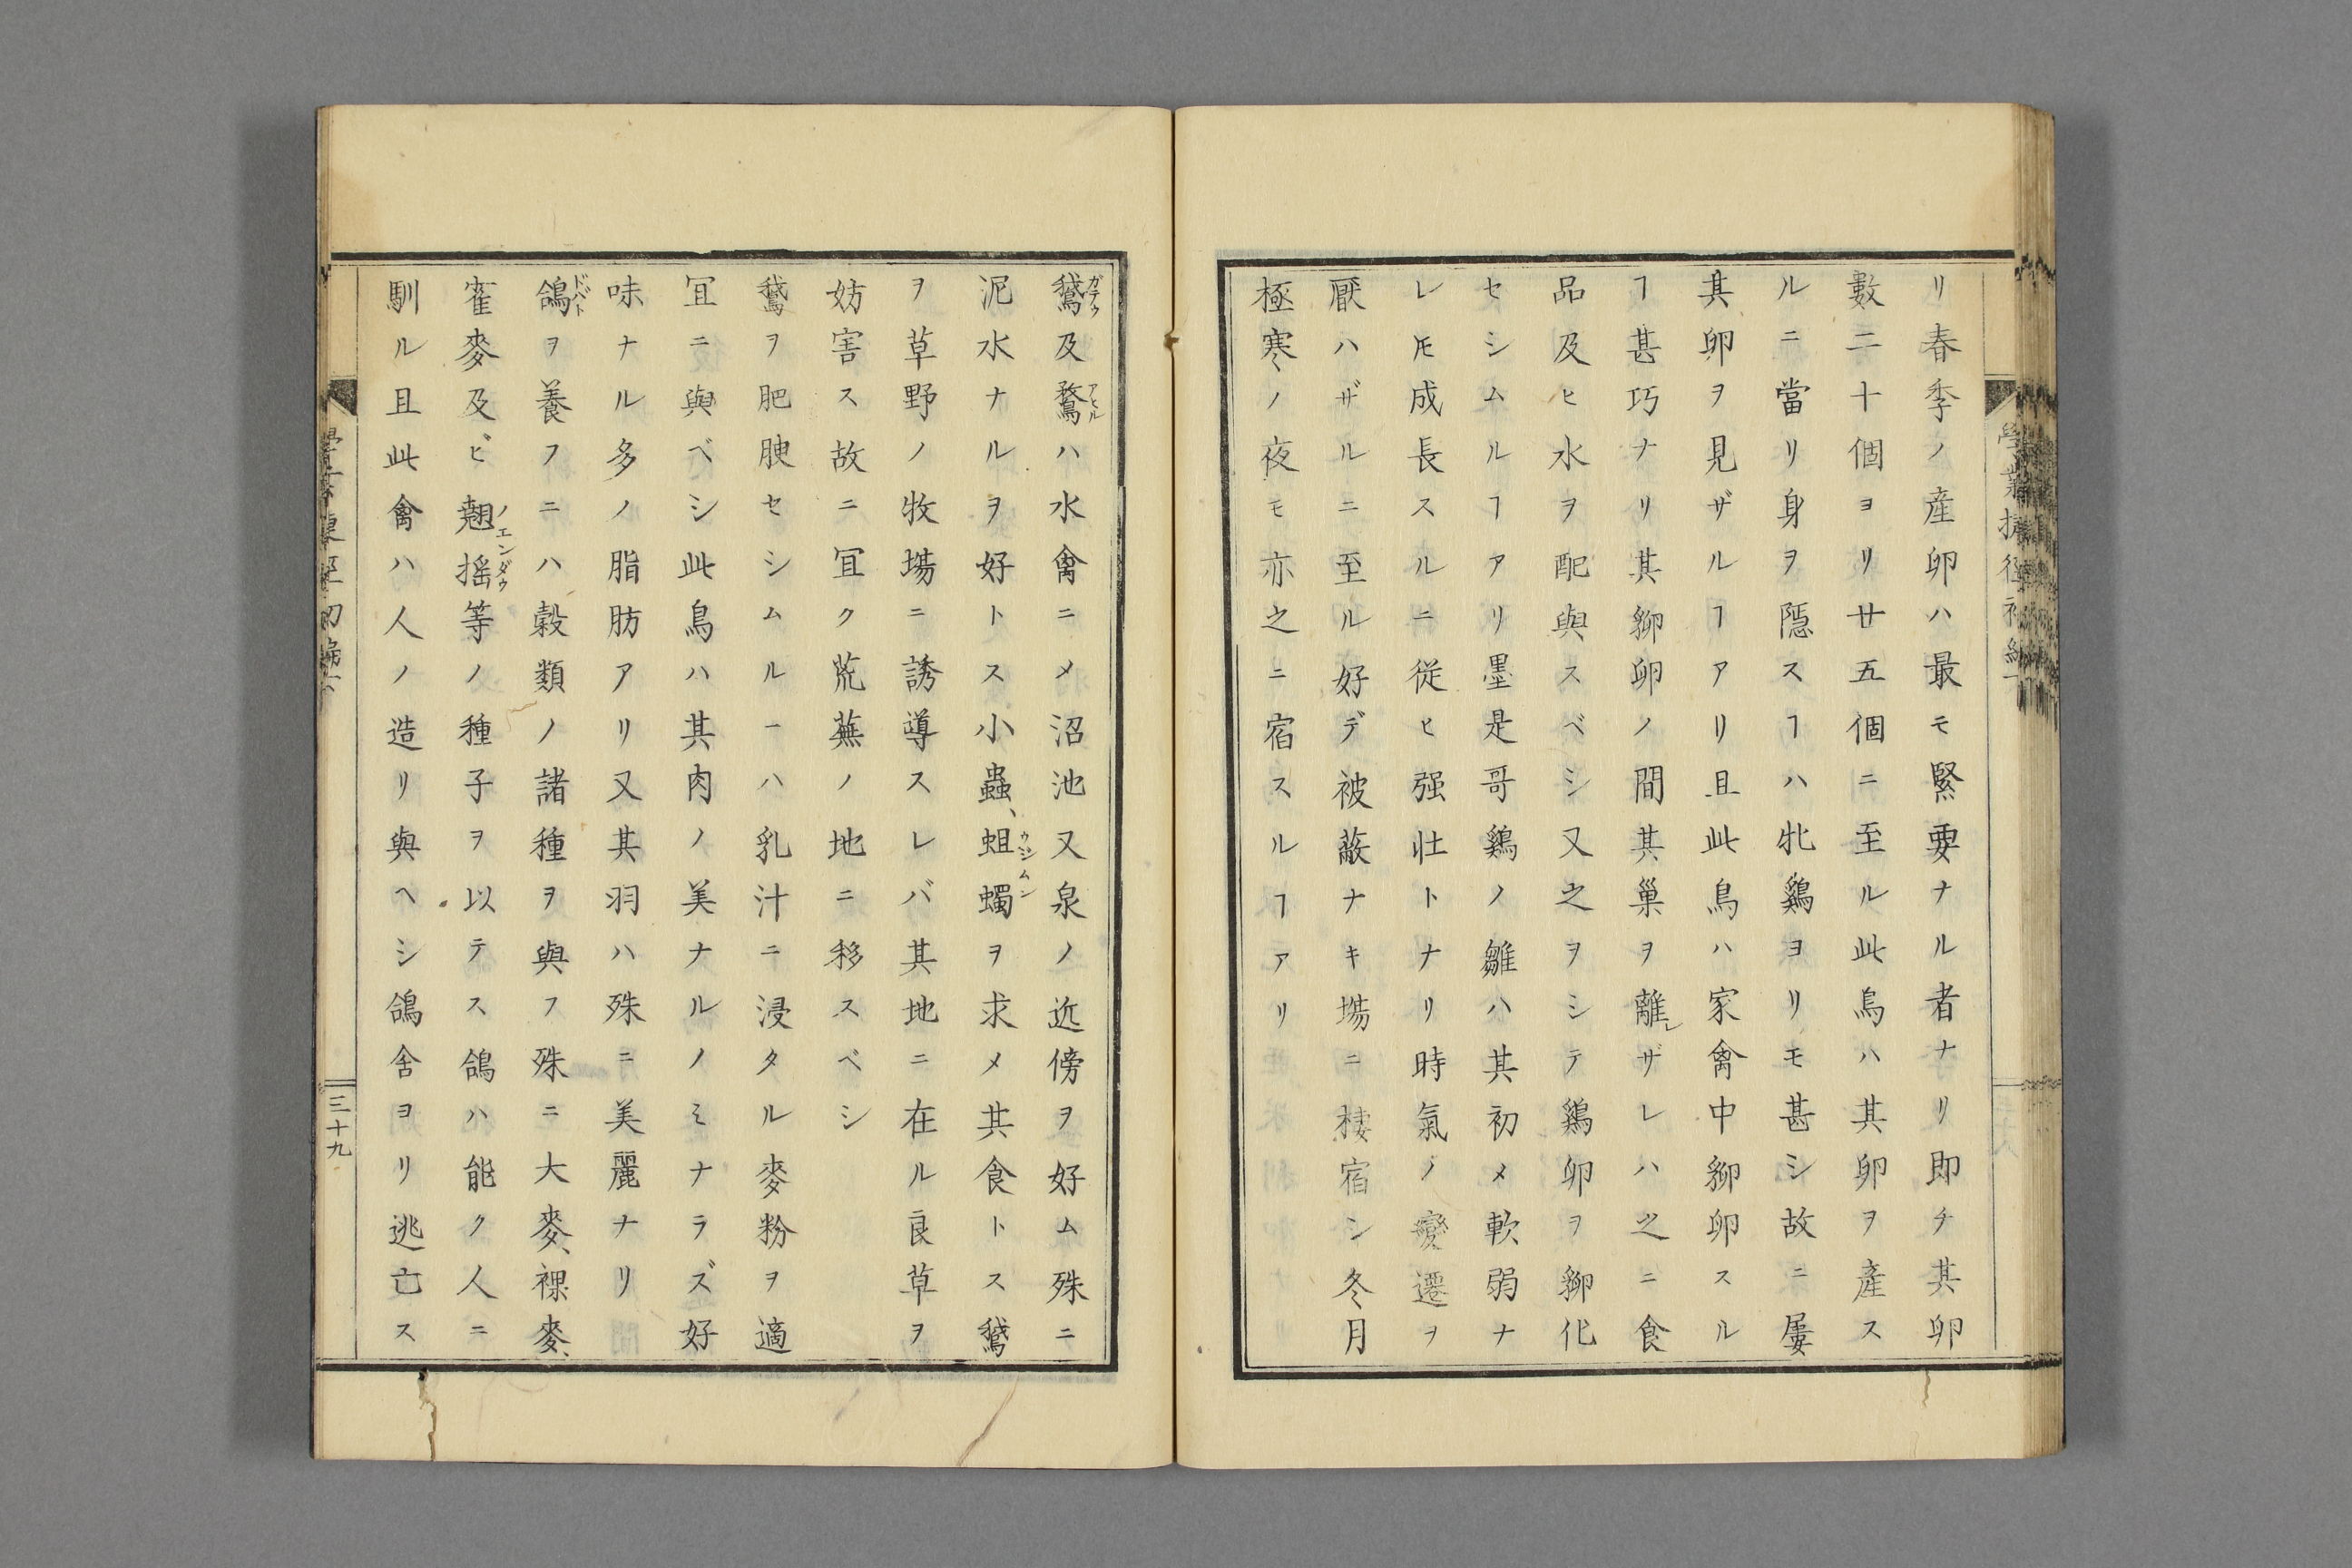 リ春季ノ産卵ハ最モ緊要ナル者ナリ即チ其卵
數二十個ヨリ廿五個ニ至ル此鳥ハ其卵ヲ産ス
ルニ當リ身ヲ隱スヿハ牝鷄ヨリモ甚シ故ニ屢
其卵ヲ見ザルヿアリ且此鳥ハ家禽中孵卵スル
ヿ甚巧ナリ其孵卵ノ間其巢ヲ離レザレハ之ニ食
品及ヒ水ヲ配與スベシ又之ヲシテ鷄卵ヲ孵化
セシムルヿアリ墨是哥鷄ノ雛ハ其初メ軟弱ナ
レ𪜈成長スルニ從ヒ强壮トナリ時氣ノ變遷ヲ
厭ハザルニ至ル好デ被蔽ナキ塲ニ棲宿シ冬月
極寒ノ夜モ亦之ニ宿スルヿアリ
鵞ガテウ及鶩アヒルハ水禽ニメ沼池又泉ノ近傍ヲ好ム殊ニ
泥水ナルヲ好トス小蟲、蛆蠋ウジムシヲ求メ其食トス鵞
ヲ草野ノ牧塲ニ誘導スレバ其地ニ在ル良草ヲ
妨害ス故ニ冝ク荒蕪ノ地ニ移スベシ
鵞ヲ肥腴セシムルーハ乳汁ニ浸タル麥粉ヲ適
冝ニ與ベシ此鳥ハ其肉ノ美ナルノミナラズ好
味ナル多ノ脂肪アリ又其羽ハ殊ニ美麗ナリ
鴿ドバトヲ養フニハ穀類ノ諸種ヲ與フ殊ニ大麥、裸麥、
雀麥及ビ翹摇ノエンダウ等ノ種子ヲ以テス鴿ハ能ク人ニ
馴ル且此禽ハ人ノ造リ與ヘシ鴿舍ヨリ逃亡ス
三十九